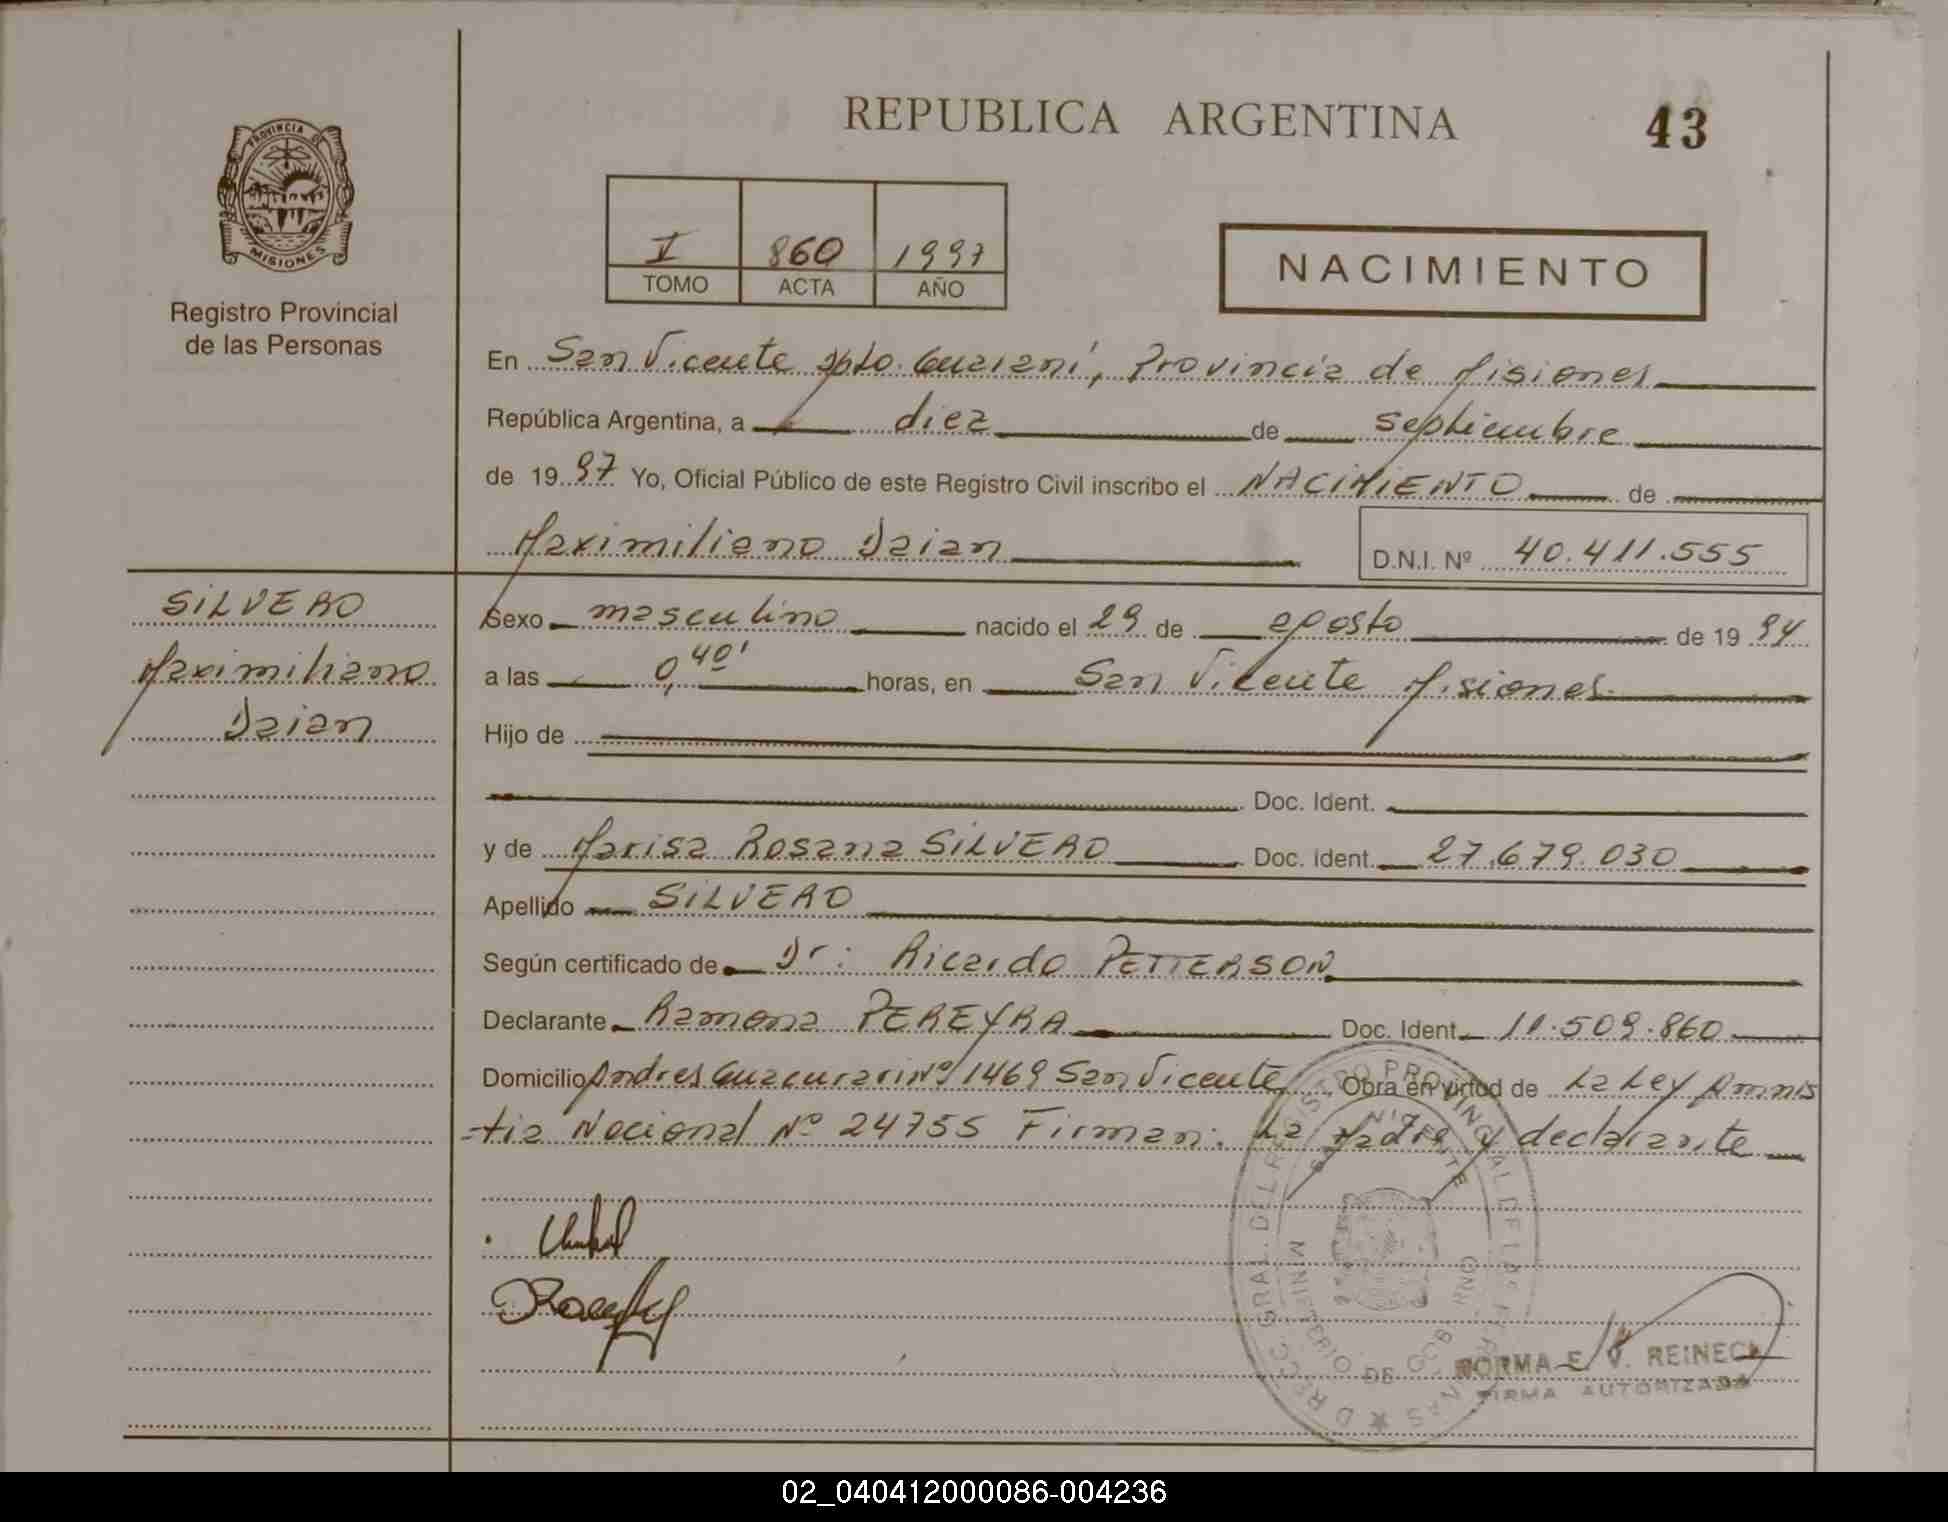 REPUBLICA ARGENTINA
43
PROVINCIA DE
MISIONES
Registro Provincial
de las Personas
I 860 1997
TOMO ACTA AÑO
NACIMIENTO
En San Vicente Dpto. Guaraní, Provincia de Misiones
República Argentina, a diez de Septiembre
de 1997 Yo, Oficial Público de este Registro Civil inscribo el NACIMIENTO de
Maximiliano Daian D.N.I. Nº 40.411.555
SILVERO
Maximiliano
Daian
Sexo masculino nacido el 29 de agosto de 1994
a las 0,40' horas, en San Vicente Misiones
Hijo de
Doc. Ident.
y de Marisa Rosana SILVERO Doc. Ident. 27.679.030
Apellido SILVERO
Según certificado de Dr: Ricardo PETTERSON
Declarante Ramona PEREYRA Doc. Ident. 11.509.860
Domicilio Andres Guacurari Nº 1469 San Vicente Obra en virtud de La Ley Amnis
-tia Nacional Nº 24755 Firman: La Madre y declarante
DIRECC. GRAL. DEL REGISTRO PROVINCIAL DE LAS PERSONAS
SAN VICENTE
MINISTERIO DE GOBIERNO
NORMA E. V. REINECK
FIRMA AUTORIZADA
02_040412000086-004236